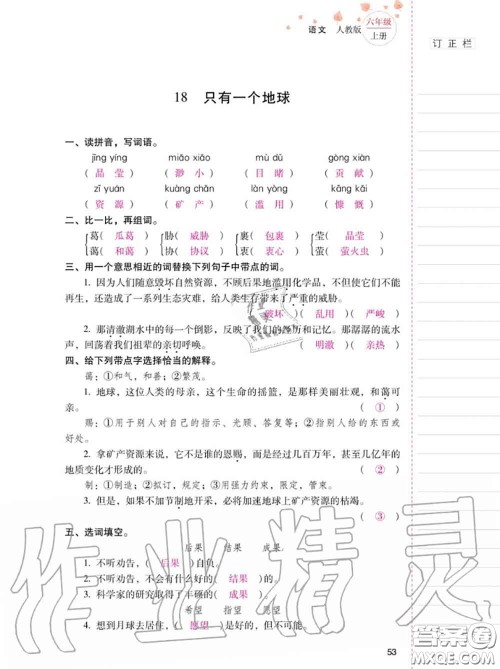 语文 人教版 六年级
上册
订正栏
18 只有一个地球
一、读拼音，写词语。
jīng yíng miǎo xiǎo mù dǔ gòng xiàn
（晶莹）（渺小）（目睹）（贡献）
zī yuán kuàng chǎn làn yòng kāng kǎi
（资源）（矿产）（滥用）（慷慨）
二、比一比，再组词。
葛（瓜葛） 胁（威胁） 裹（包裹） 莹（晶莹）
蔼（和蔼） 协（协议） 衷（衷心） 萤（萤火虫）
三、用一个意思相近的词替换下列句子中带点的词。
1. 因为人们随意毁坏自然资源，不顾后果地滥用化学品，不但使它们不能再生，
还造成了一系列生态灾难，给人类生存带来了严重的威胁。
（破坏）（乱用）（严峻）
2. 那清澈湖水中的每一个倒影，反映了我们的经历和记忆。那潺潺的流水
声，回荡着我们祖辈的亲切呼唤。
（明澈）（亲热）
四、给下列带点字选择恰当的解释。
蔼：①和气，和善；②繁茂。
1. 地球，这位人类的母亲，这个生命的摇篮，是那样美丽壮观，和蔼可
亲。 （①）
赐：①用于别人对自己的指示、光顾、答复等；②指上级给下级的东西或
好处。
2. 拿矿产资源来说，它不是谁的恩赐，而是经过几百万年，甚至几亿年的
地质变化才形成的。 （②）
制：①制造；②拟订，规定；③用强力约束，限定，管束；④制度。
3. 但是，如果不加节制地开采，必将加速地球上矿产资源的枯竭。
（③）
五、选词填空。
后果 结果 成果
1. 不听劝告，（后果）自负。
2. 不听劝告，不会有什么好的（结果）的。
3. 科学家的研究取得了丰硕的（成果）。
希望 指望 愿望
4. 想到月球去居住，（愿望）是好的，但不可能。
53
作业精灵